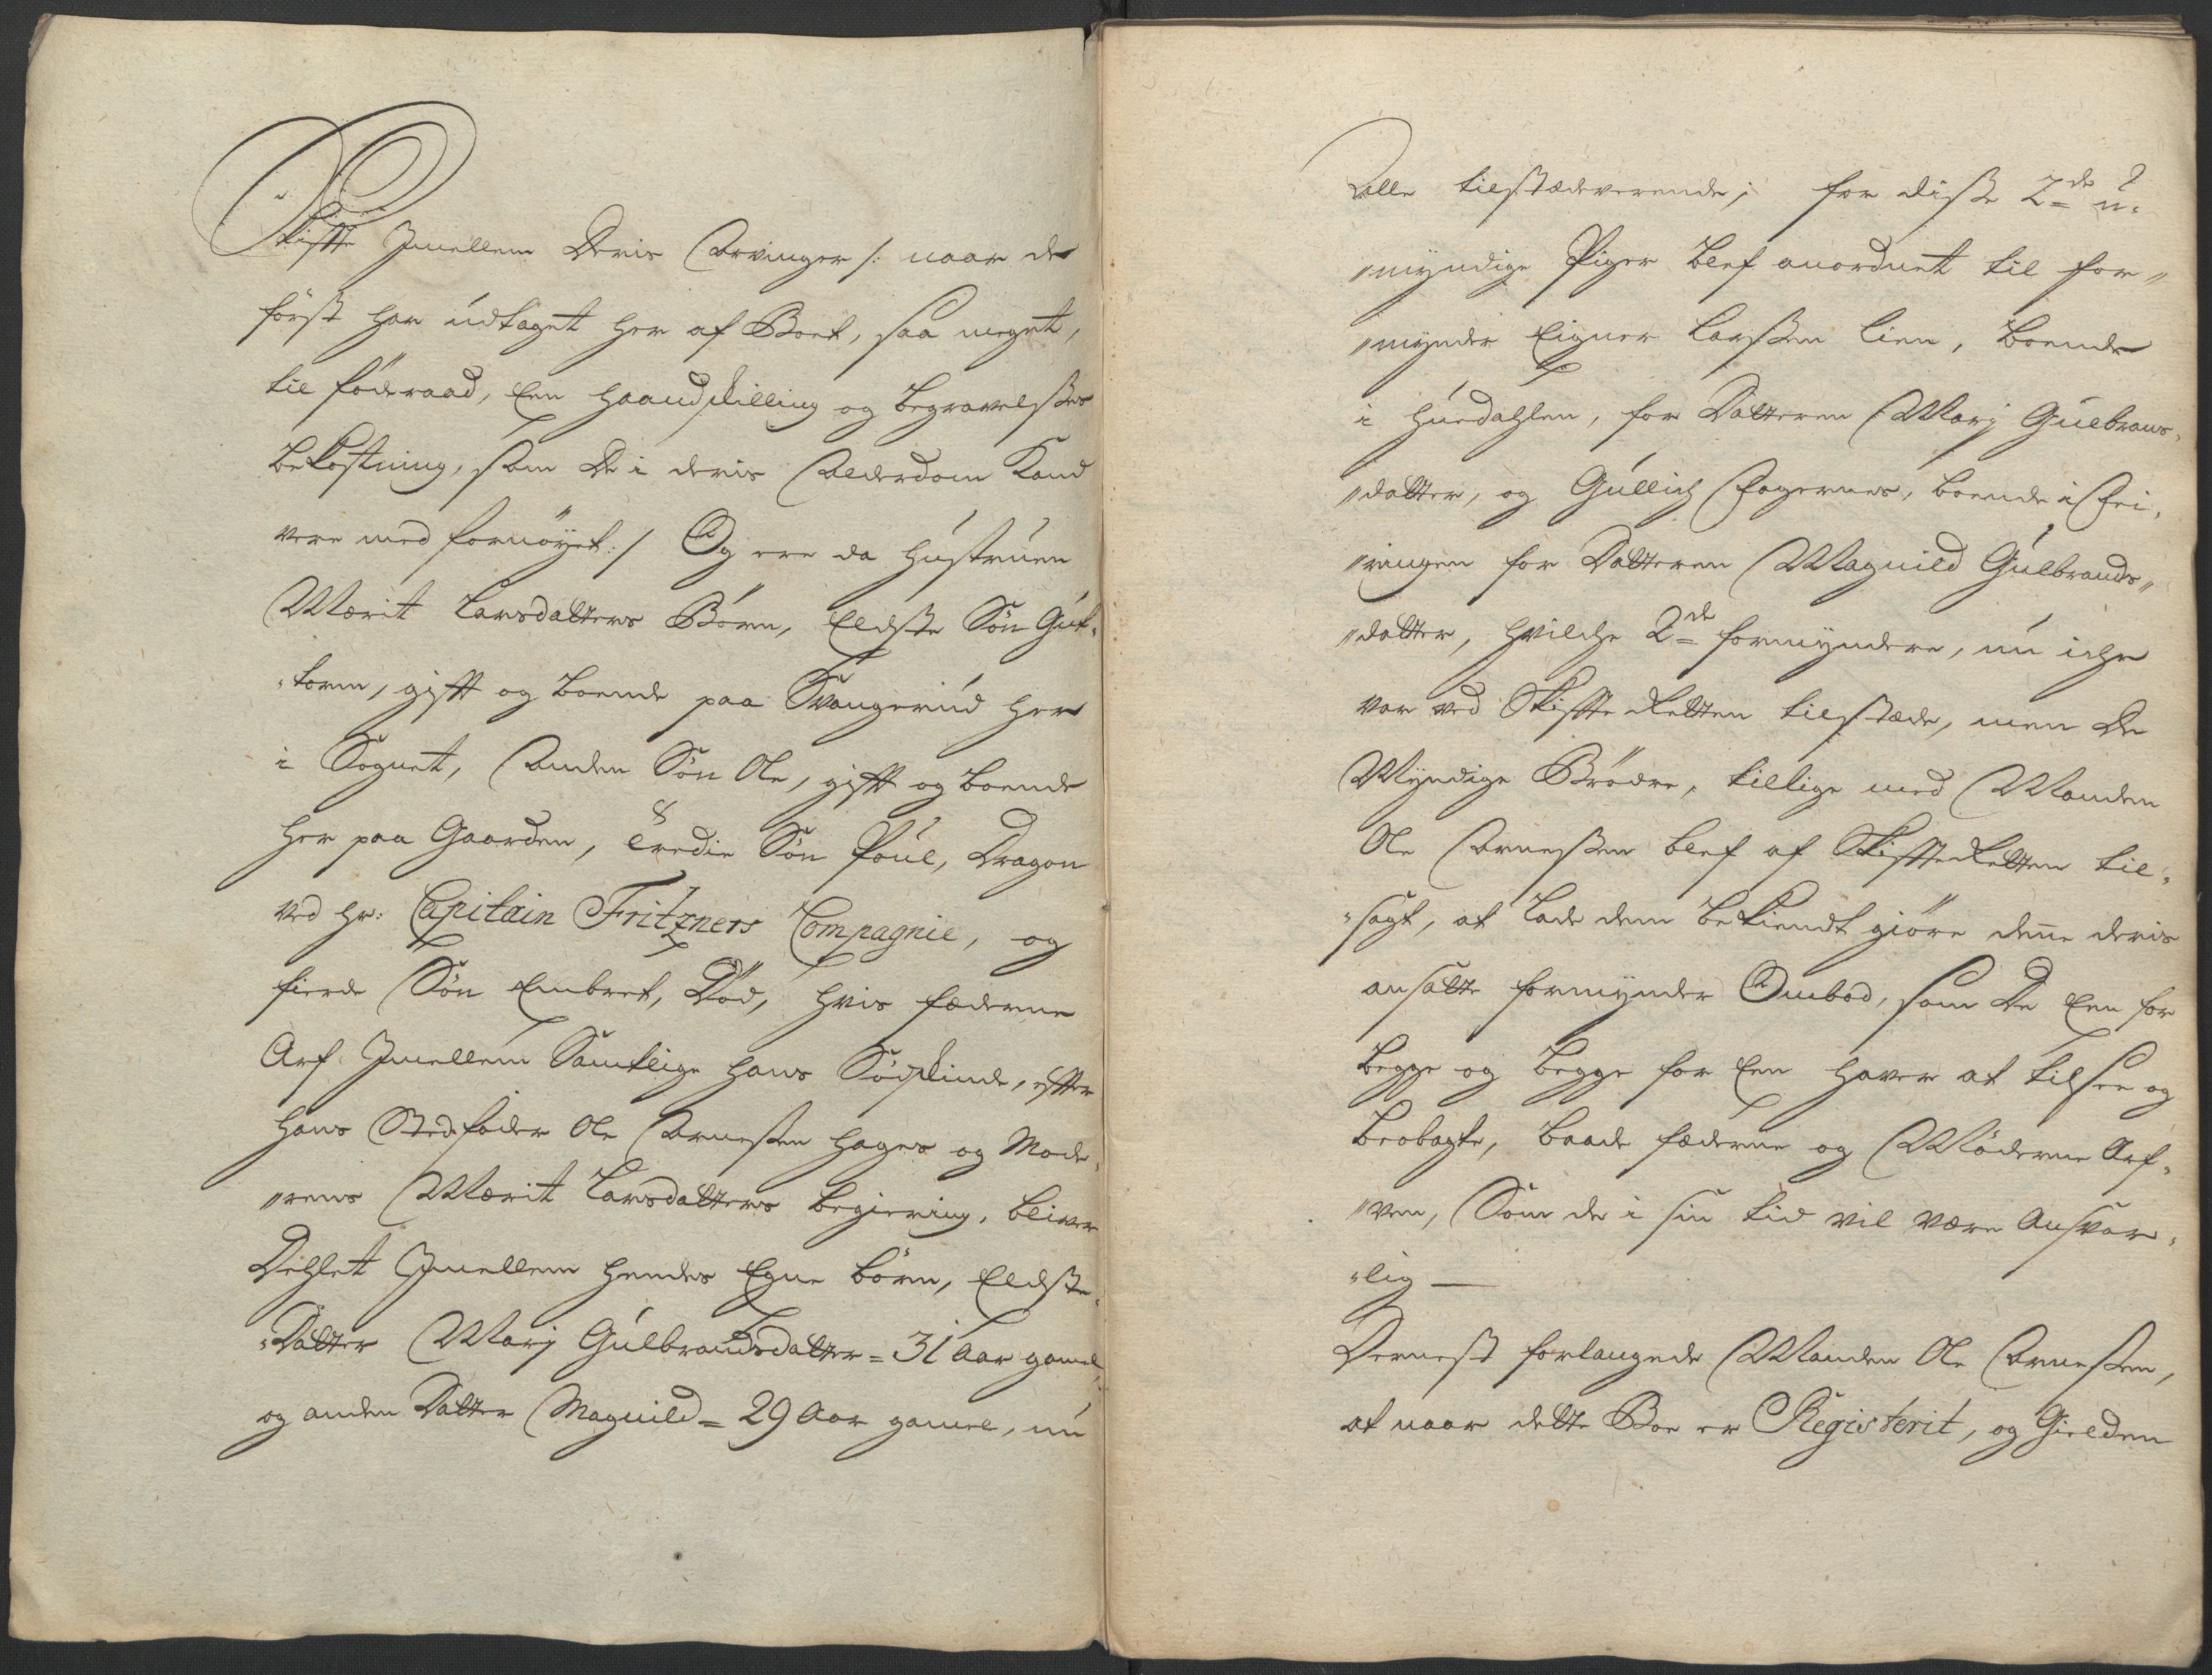 Skifte Imellem Deris Arvinger /: naar de
först har udtaget her af Boet, saa meget,
til föderaad, Een haandskilling og begravelses
bekostning, som De i deris Alderdom Kand
vere med fornöyet :/ Og ere da hustruen
Marit Larsdatters Börn, Eldste Sön Gut„
„torm, gift og boende paa Svangerud her
i Sognet, Anden Sön Ole, gift og boende
her paa Gaarden, Tredie Sön Poul, Dragon
ved Hr: Capitain Fritzners Compagnie, og
fierde Sön Embret, Död, hvis fæderne
Arf Imellem Samtlige hans Södskinde, efter
hans Stedfader Ole Arnesen Hages og Mode„
„rens Marit Larsdatters begiering, bliver
Dehlet Imellem hendes Egne börn, Eldste„
„Datter Marj Gulbrandsdatter = 31 Aar gamel,
og anden Datter Magnild = 29 Aar gamel, nu
Alle tilstædeværende; for disse 2de u„
„myndige Piger blef anordnet til for„
„mynder Eigner Larsen Lien, boende
i Huedahlen, for Datteren Marj Gulbrans„
„datter, og Gullich Fagernes, boende i
„ringen for Datteren Magnild Gulbrands„
„datter, hvilche 2de formyndere, nu iche
var ved Skifte Retten tilstæde, men De
Myndige Brödre, tillige med Manden
Ole Arnesen blef af Skifte Retten til„
„sagt, at lade dem bekiendt giöre denne deris
ansatte formynder Ombod, som De Een for
begge og begge for Een haver at tilsee og
beobagte, baade fæderne og Möderne Arf„
„ven, Som de i sin tid vil være Ansvar„
„lig —
Dernest forlangede Manden Ole Arnesen,
at naar dette Boe er Registerit, og Gielden